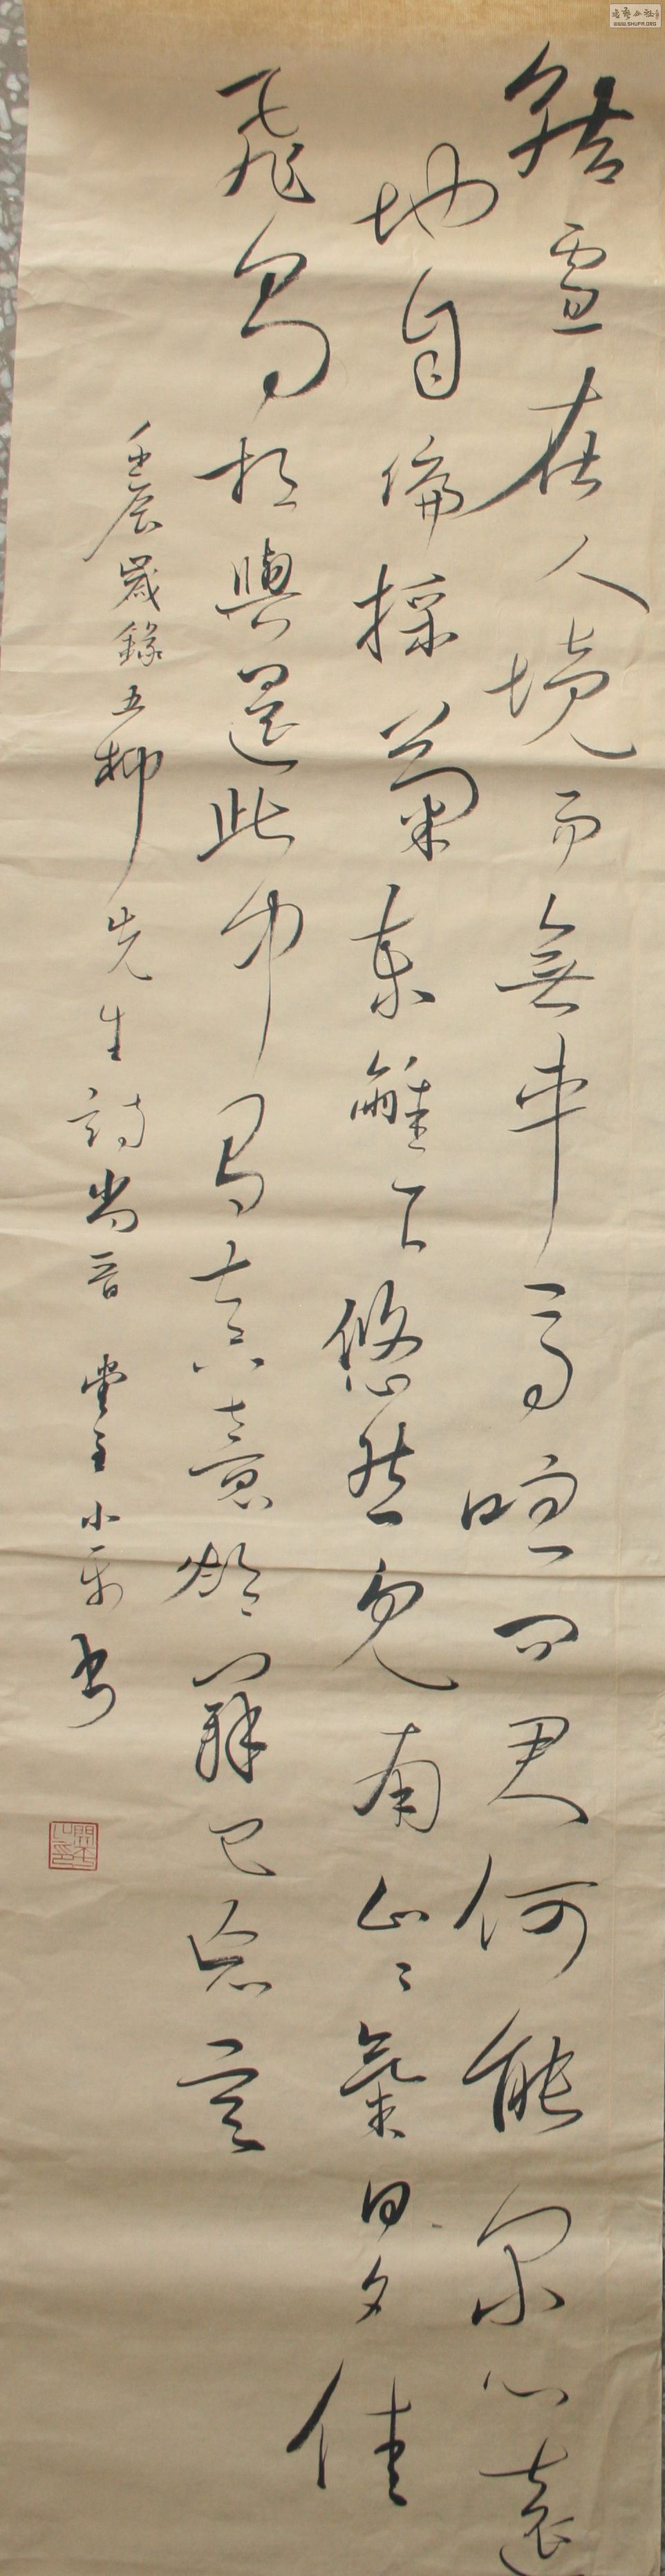 結廬在人境而無車馬喧問君何能爾心遠
地自偏採菊東籬下悠然見南山々氣日夕佳
飛鳥相與還此中有真意欲辨已忘言
壬辰歲錄五柳先生詩尚音堂主小書
WWW.SHUFA.ORG